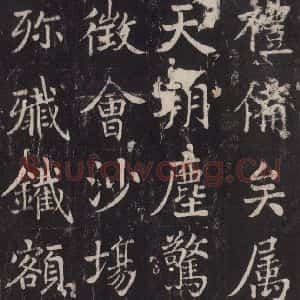 禮備矣属
天朔塵驚
徵會沙場
弥殲鐵額
Shufawang.CN